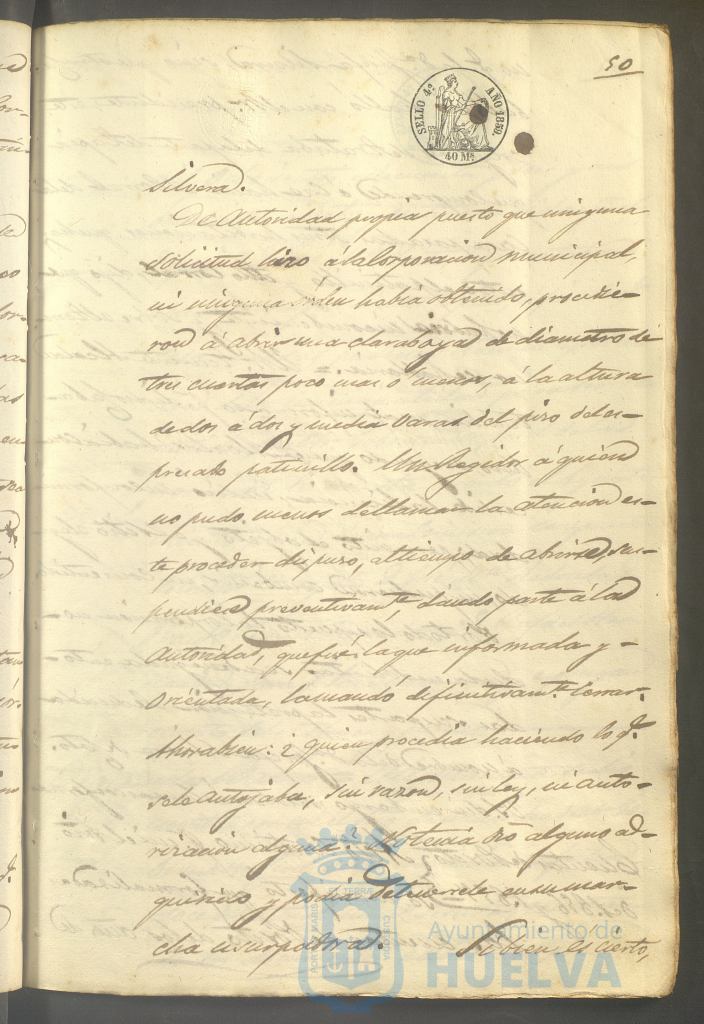 50
SELLO 4º AÑO 1859.
40 Ms
Silvera.
De Autoridad propia puesto que ninguna
solicitud hizo á la Corporacion municipal,
ni ninguna orden habia obtenido, procedie-
ron á abrir una claraboya de diametro de
tres cuartas poco mas ó menos, á la altura
de dos á dos y media varas del piso del es-
presado patinillo. Un Regidor á quien
no pudo menos de llamar la atencion es-
te proceder dispuso, al tiempo de abrirse, sus-
penderla preventivamte, dando parte á la
Autoridad, que fué la que informada y
orientada, la mandó definitivamte. cerrar.
Ahora bien: ¿quien procedia haciendo lo q.
se le antojaba, sin razon, sin ley, ni auto-
rizacion alguna? No tenia dro alguno ad-
quirido y podia detenersele en su mar-
cha usurpadora. Si bien es cierto,
PORTUS MARIS ET TERRÆ CUSTODIA
Ayuntamiento de
HUELVA